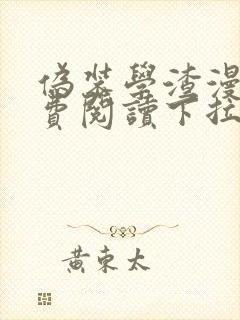 偽裝學渣漫
費閱讀下拉
黃東太